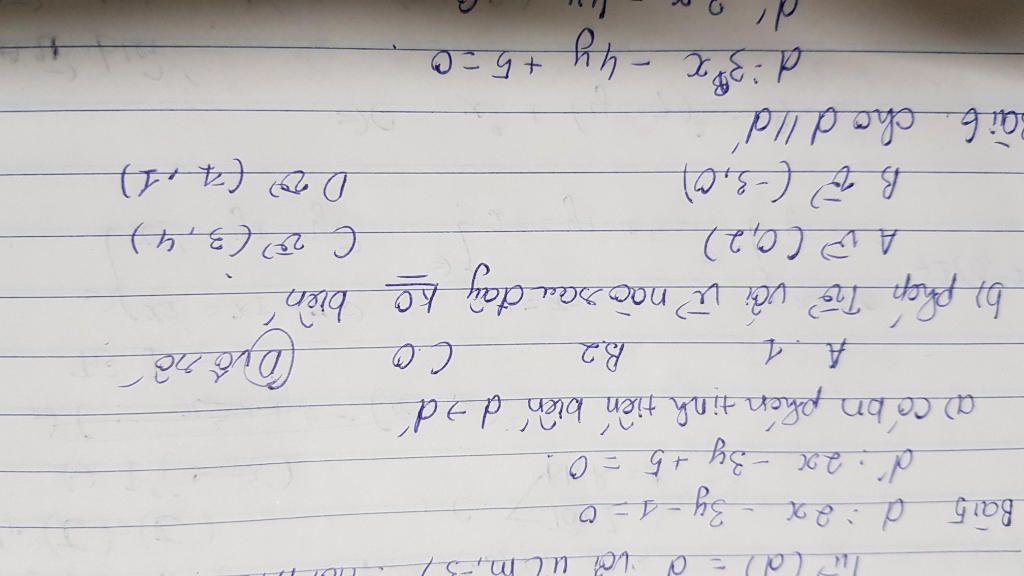 d = 0 với u(m, -3)
Bài 5 d: 2x - 3y - 1 = 0
d': 2x - 3y + 5 = 0
a) có bn phép tịnh tiến biến d → d'
A. 1 B 2 C. 0 D, vô số
b) phép Tv⃗ với v⃗ nào sau đây ko biến
A v⃗ (0,2) C v⃗ (3,4)
B v⃗ (-3,0) D v⃗ (1,1)
Bài 6. cho d // d'
d: 3x - 4y + 5 = 0